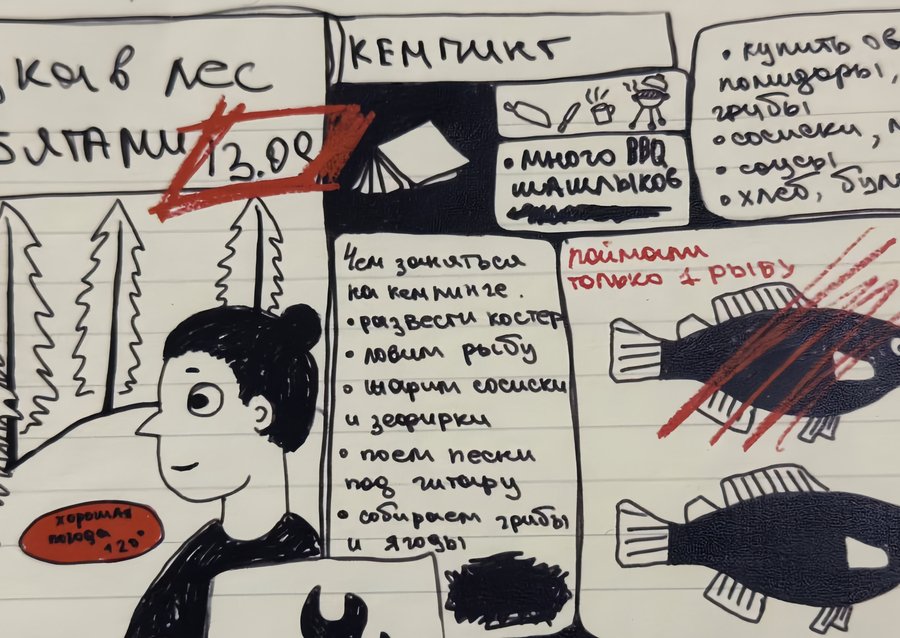 ка в лес
БЯТАМИ 13.09
КЕМПИНГ
• МНОГО BBQ
ШАШЛЫКОВ
• купить ов
помидоры,
грибы
• сосиски,
• соусы
• хлеб, бул
Чем заняться
на кемпинге.
• развести костер
• ловим рыбу
• шарим сосиски
и зефирки
• поем пески
под гитару
• собираем грибы
и ягоды
поймали
только 1 рыбу
хорошая
погода
+20°